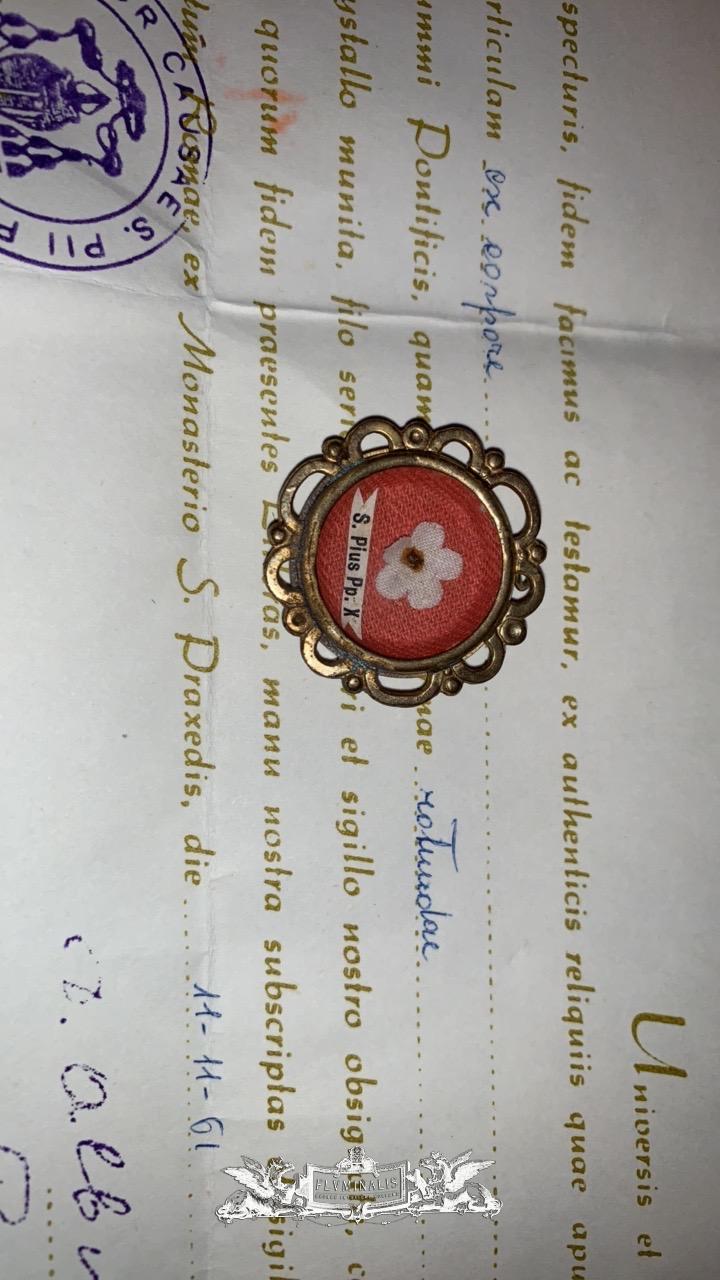 Universis et
specturis, fidem facimus ac testamur, ex authenticis reliquiis quae apu
rticulam ex corpore
ummi Pontificis, quam nae rotundae
ystallo munita, filo seri ri et sigillo nostro obsig
quorum fidem praesentes as, manu nostra subscriptas sigil
Romae, ex Monasterio S. Praxedis, die 11-11-61
R CAUSAE S. PII
S. Pius Pp. X
FLVMINALIS